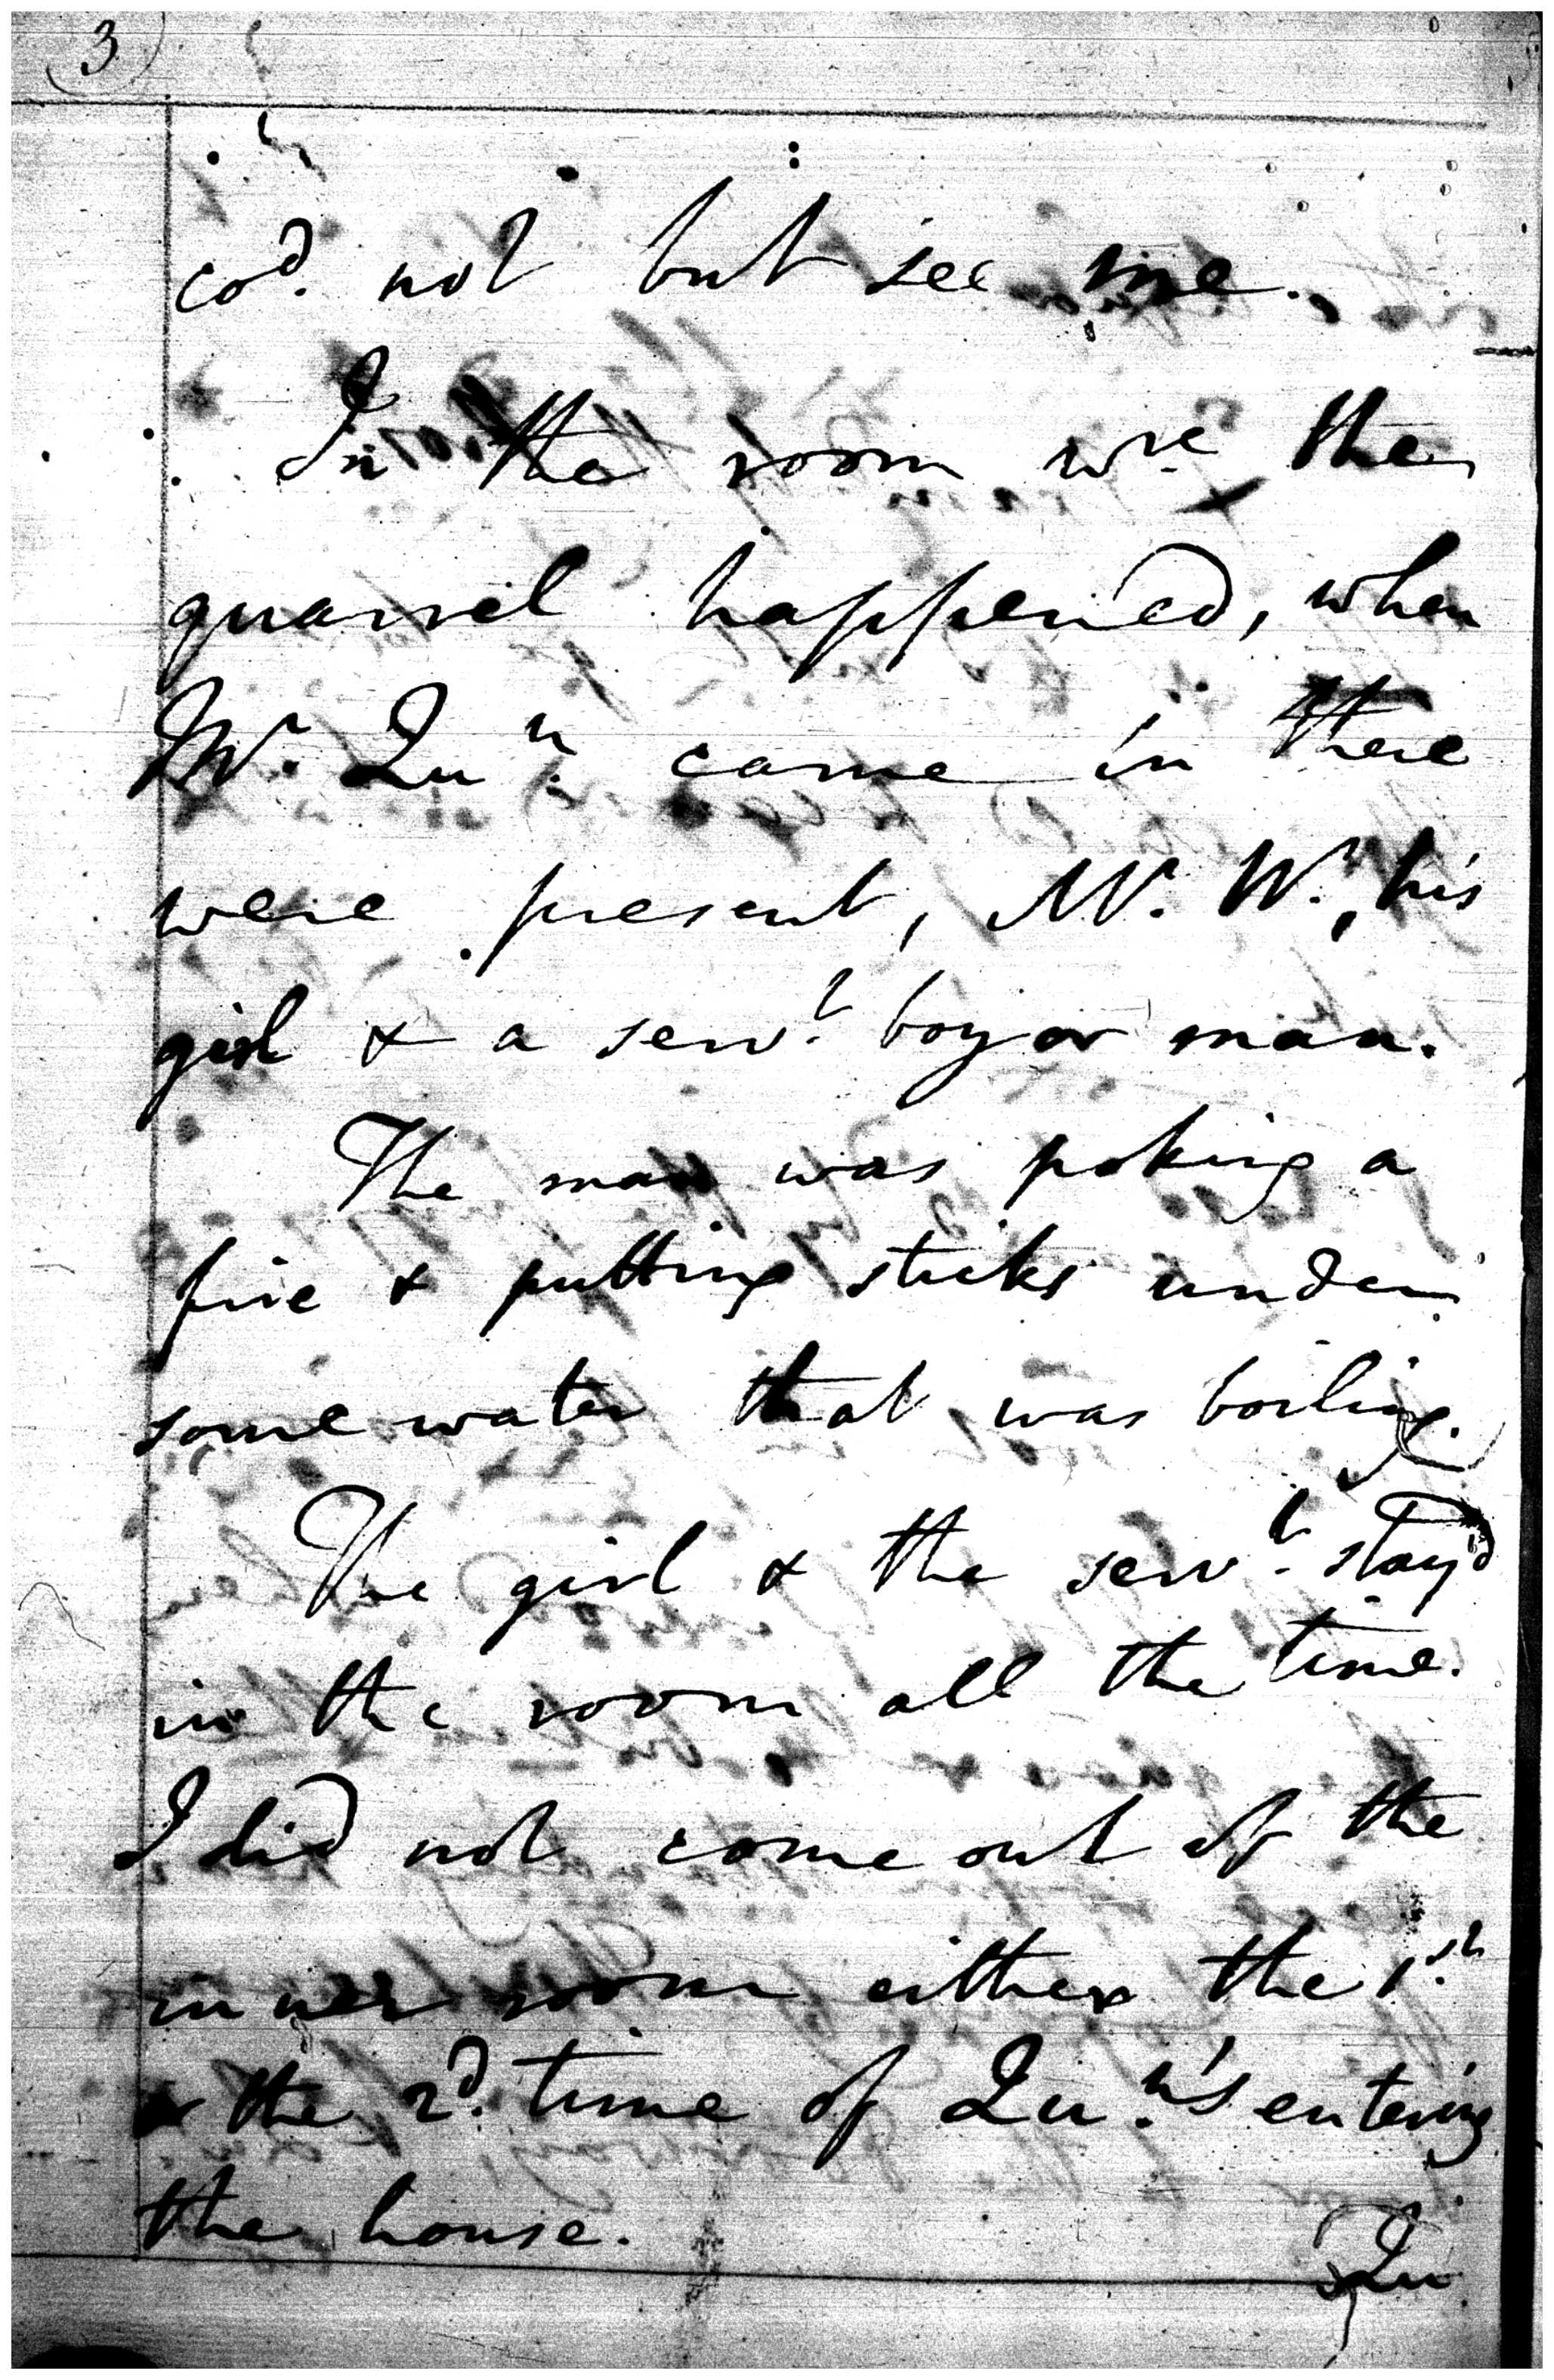 3
cod. not but see me.
In the room wre the
quarrel happened, when
Mr. Qun. came in there
were present, Mr. W., his
girl & a servt. boy or man.
The man was poking a
fire & putting sticks under
some water that was boiling.
The girl & the servt. stay'd
in the room all the time.
I did not come out of the
inner room either the 1st.
or the 2d. time of Qun.'s entering
the house.
Qu